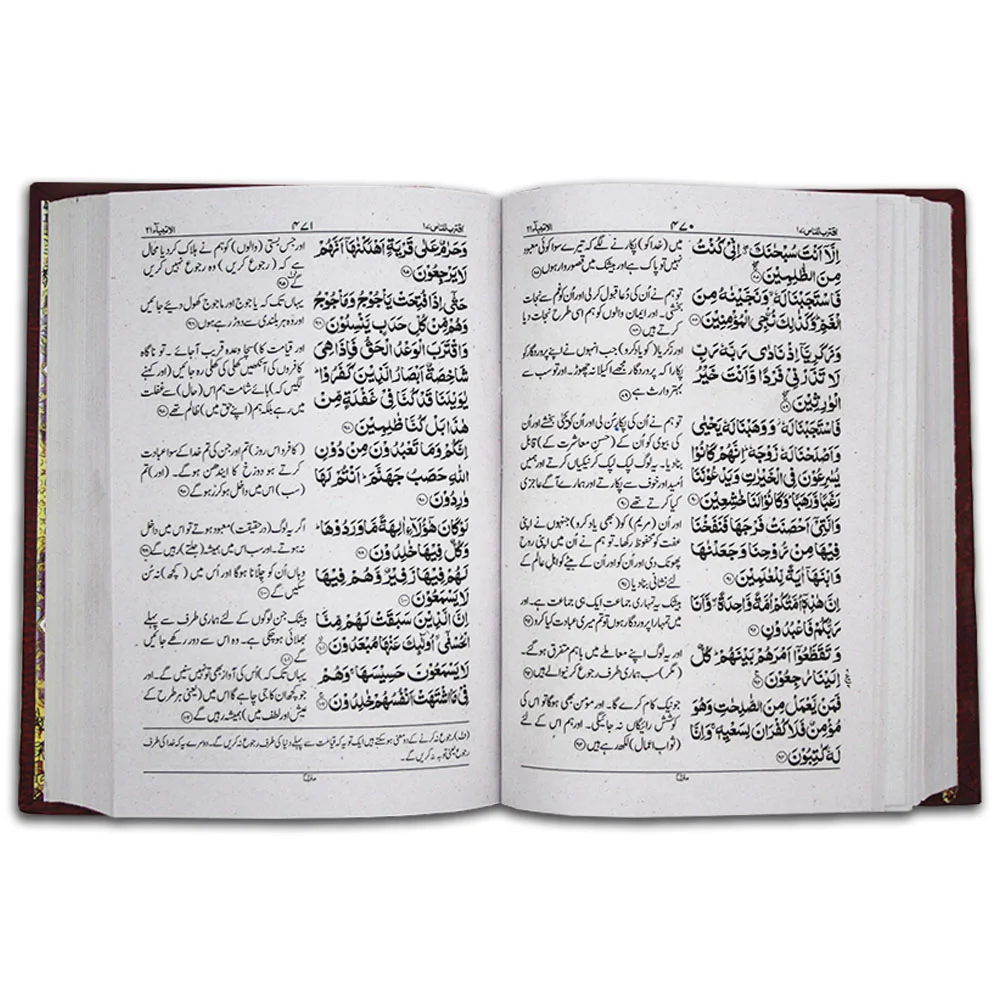 اقترب للناس ۱۷
۴۷۰
الانبیاء ۲۱
اِلَّاۤ اَنْتَ سُبْحٰنَكَ ۖ اِنِّیْ كُنْتُ
مِنَ الظّٰلِمِیْنَ ۝۸۷
فَاسْتَجَبْنَا لَهٗ ۙ وَنَجَّیْنٰهُ مِنَ
الْغَمِّ ؕ وَكَذٰلِكَ نُـنْجِی الْمُؤْمِنِیْنَ ۝۸۸
وَزَكَرِیَّاۤ اِذْ نَادٰی رَبَّهٗ رَبِّ
لَا تَذَرْنِیْ فَرْدًا وَّاَنْتَ خَیْرُ
الْوٰرِثِیْنَ ۝۸۹
فَاسْتَجَبْنَا لَهٗ ۫ وَوَهَبْنَا لَهٗ یَحْیٰی
وَاَصْلَحْنَا لَهٗ زَوْجَهٗ ؕ اِنَّهُمْ كَانُوْا
یُسٰرِعُوْنَ فِی الْخَیْرٰتِ وَیَدْعُوْنَنَا
رَغَبًا وَّرَهَبًا ؕ وَكَانُوْا لَنَا خٰشِعِیْنَ ۝۹۰
وَالَّتِیْۤ اَحْصَنَتْ فَرْجَهَا فَنَفَخْنَا
فِیْهَا مِنْ رُّوْحِنَا وَجَعَلْنٰهَا
وَابْنَهَاۤ اٰیَةً لِّلْعٰلَمِیْنَ ۝۹۱
اِنَّ هٰذِهٖۤ اُمَّتُكُمْ اُمَّةً وَّاحِدَةً ۖؗ وَّاَنَا
رَبُّكُمْ فَاعْبُدُوْنِ ۝۹۲
وَتَقَطَّعُوْۤا اَمْرَهُمْ بَیْنَهُمْ ؕ كُلٌّ
اِلَیْنَا رٰجِعُوْنَ ۝۹۳
فَمَنْ یَّعْمَلْ مِنَ الصّٰلِحٰتِ وَهُوَ
مُؤْمِنٌ فَلَا كُفْرَانَ لِسَعْیِهٖ ۚ وَاِنَّا
لَهٗ كٰتِبُوْنَ ۝۹۴
میں (خدا کو) پکارنے لگے کہ تیرے سوا کوئی معبود
نہیں تو پاک ہے اور بیشک میں قصوروار ہوں ۸۷
تو ہم نے اُن کی دُعا قبول کر لی اور اُن کو غم سے نجات
بخشی۔ اور ایمان والوں کو ہم اسی طرح نجات دیا
کرتے ہیں ۸۸
اور زکریا (کو یاد کرو) جب انہوں نے اپنے پروردگار کو
پکارا کہ پروردگار مجھے اکیلا نہ چھوڑ۔ اور تو سب سے
بہتر وارث ہے ۸۹
تو ہم نے اُن کی پکار سُن لی اور اُن کو یحییٰ بخشے اور اُن
کی بیوی کو اُن کے (حسن معاشرت کے) قابل
بنا دیا۔ یہ لوگ لپک لپک کر نیکیاں کرتے اور ہمیں
اُمید اور خوف سے پکارتے اور ہمارے آگے عاجزی
کیا کرتے تھے ۹۰
اور اُن (مریم) کو (بھی یاد کرو) جنہوں نے اپنی
عفت کو محفوظ رکھا۔ تو ہم نے اُن میں اپنی روح
پھونک دی اور اُن کو اور اُن کے بیٹے کو اہل عالم کے
لئے نشانی بنا دیا ۹۱
بیشک یہ تمہاری جماعت ایک ہی جماعت ہے۔ اور
میں تمہارا پروردگار ہوں تو تم میری عبادت کیا کرو ۹۲
اور یہ لوگ اپنے معاملے میں باہم متفرق ہو گئے۔
(مگر) سب ہماری طرف رجوع کرنے والے ہیں ۹۳
جو نیک کام کرے گا۔ اور مومن بھی ہوگا تو اس کی
کوشش رائیگاں نہ جائیگی۔ اور ہم اس کے لئے
(ثواب اعمال) لکھ رہے ہیں ۹۴
اقترب للناس ۱۷
۴۷۱
الانبیاء ۲۱
وَحَرٰمٌ عَلٰی قَرْیَةٍ اَهْلَكْنٰهَاۤ اَنَّهُمْ
لَا یَرْجِعُوْنَ ۝۹۵
حَتّٰۤی اِذَا فُتِحَتْ یَاْجُوْجُ وَمَاْجُوْجُ
وَهُمْ مِّنْ كُلِّ حَدَبٍ یَّنْسِلُوْنَ ۝۹۶
وَاقْتَرَبَ الْوَعْدُ الْحَقُّ فَاِذَا هِیَ
شَاخِصَةٌ اَبْصَارُ الَّذِیْنَ كَفَرُوْا ؕ
یٰوَیْلَنَا قَدْ كُنَّا فِیْ غَفْلَةٍ مِّنْ
هٰذَا بَلْ كُنَّا ظٰلِمِیْنَ ۝۹۷
اِنَّكُمْ وَمَا تَعْبُدُوْنَ مِنْ دُوْنِ
اللّٰهِ حَصَبُ جَهَنَّمَ ؕ اَنْتُمْ لَهَا
وٰرِدُوْنَ ۝۹۸
لَوْ كَانَ هٰۤؤُلَآءِ اٰلِهَةً مَّا وَرَدُوْهَا ؕ
وَكُلٌّ فِیْهَا خٰلِدُوْنَ ۝۹۹
لَهُمْ فِیْهَا زَفِیْرٌ وَّهُمْ فِیْهَا
لَا یَسْمَعُوْنَ ۝۱۰۰
اِنَّ الَّذِیْنَ سَبَقَتْ لَهُمْ مِّنَّا
الْحُسْنٰۤی ۙ اُولٰٓئِكَ عَنْهَا مُبْعَدُوْنَ ۝۱۰۱
لَا یَسْمَعُوْنَ حَسِیْسَهَا ۚ وَهُمْ
فِیْ مَا اشْتَهَتْ اَنْفُسُهُمْ خٰلِدُوْنَ ۝۱۰۲
اور جس بستی (والوں) کو ہم نے ہلاک کر دیا محال
ہے کہ (رجوع کریں) وہ رجوع نہیں کریں
گے ۹۵
یہاں تک کہ یاجوج اور ماجوج کھول دیئے جائیں
اور وہ ہر بلندی سے دوڑ رہے ہوں ۹۶
اور قیامت کا سچا وعدہ قریب آجائے۔ تو ناگاہ
کافروں کی آنکھیں کھلی کی کھلی رہ جائیں (اور کہنے
لگیں کہ) ہائے شامت ہم اس (حال) سے غفلت
میں رہے بلکہ ہم (اپنے حق میں) ظالم تھے ۹۷
(کافرو اس روز) تم اور جن کی تم خدا کے سوا عبادت
کرتے ہو دوزخ کا ایندھن ہوگے۔ (اور) تم
(سب) اس میں داخل ہو کر رہو گے ۹۸
اگر یہ لوگ (درحقیقت) معبود ہوتے تو اس میں داخل
نہ ہوتے۔ اور سب اس میں ہمیشہ (جلتے) رہیں گے ۹۹
وہاں اُن کو چلانا ہوگا اور اُس میں (کچھ) نہ سُن
سکیں گے ۱۰۰
بیشک جن لوگوں کے لئے ہماری طرف سے پہلے
بھلائی ہو چکی ہے۔ وہ اس سے دور رکھے جائیں
گے ۱۰۱
یہاں تک کہ) اُس کی آواز بھی تو نہیں سنیں گے۔ اور
جو کچھ ان کا جی چاہے گا اس میں (یعنی ہر طرح کے
عیش اور لطف میں) ہمیشہ رہیں گے ۱۰۲
(ف) رجوع نہ کرنے کے دو معنی ہو سکتے ہیں ایک تو یہ کہ قیامت سے پہلے دنیا کی طرف رجوع نہ کریں گے۔ دوسرے یہ کہ خدا کی طرف
رجوع یعنی توبہ نہ کریں گے۔